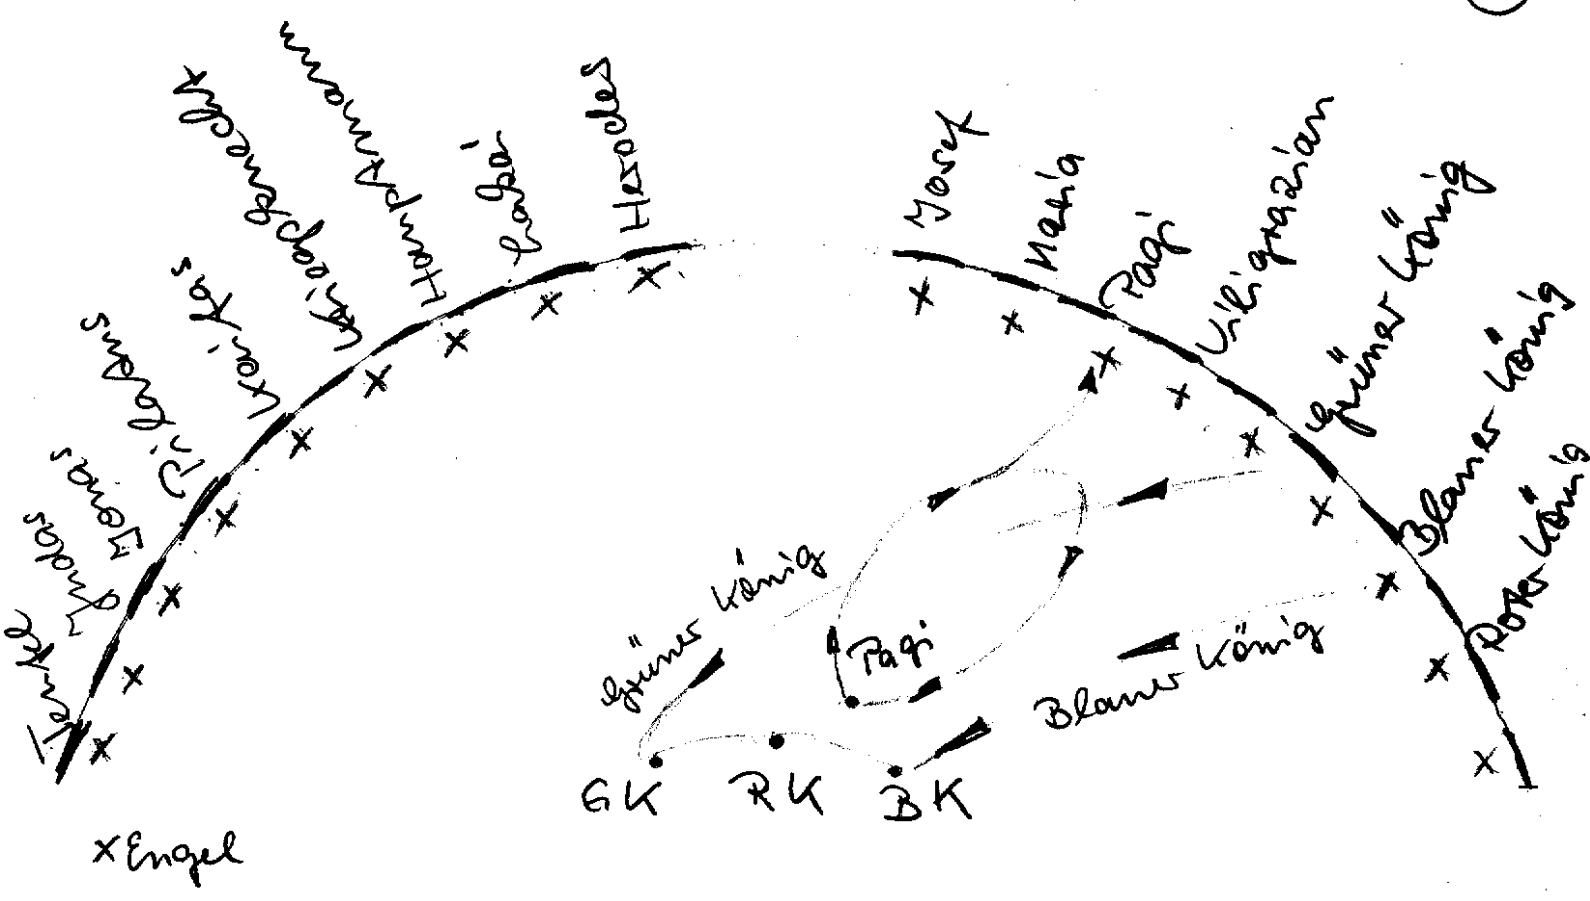 Judas
Jonas
Pilatus
Kaifas
Kriegsknecht
Hauptmann
Lakai
Herodes
Josef
Maria
Pagi
Viligrazian
Grüner König
Blauer König
Roter König
Grüner König
Pagi
Blauer König
GK
RK
BK
x Engel